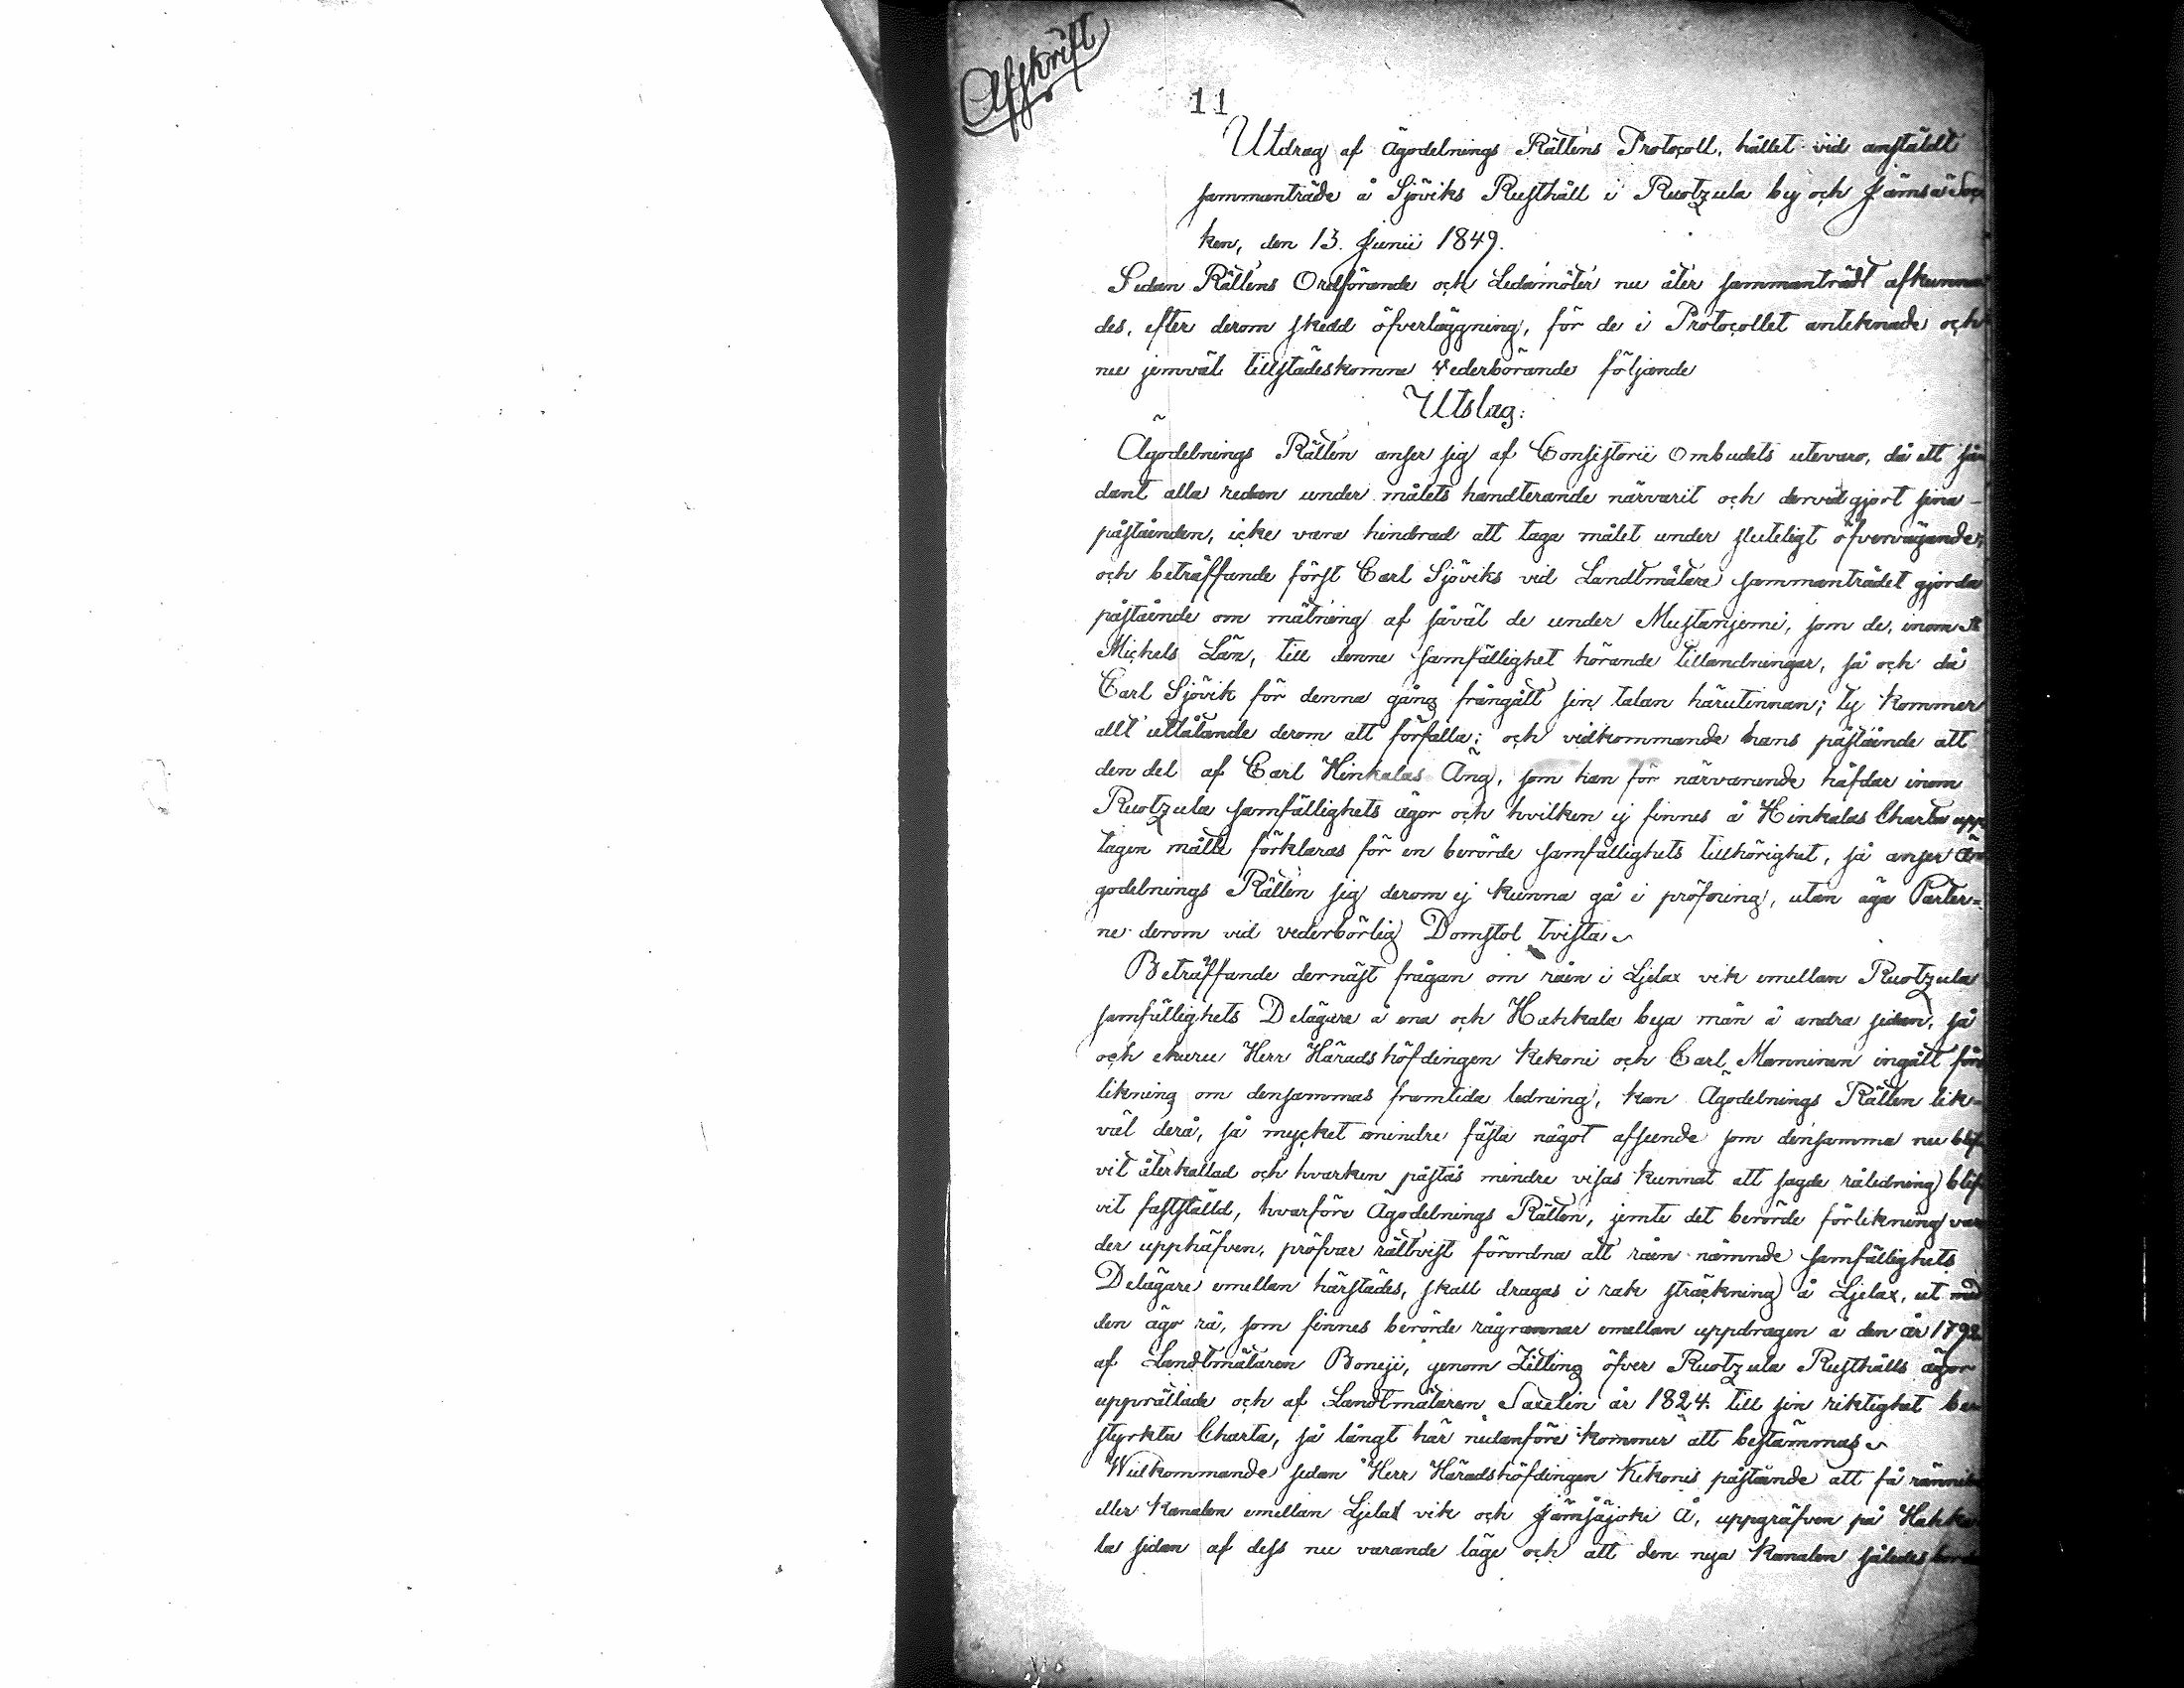 Afskrift
11
Utdrag af Ägodelnings Rättens Protocoll, hållet vid anstäldt
sammanträde å Sjöviks Rusthåll i Ruotzula by och Jämsä Soc
ken, den 13. Junii 1849.
Sedan Rättens Ordförande och Ledamöter nu åter sammanträdt afkunna
des, efter derom skedd öfverläggning, för de i Protocollet anteknade och
nu jemväl tillstädeskomne vederbörande följande
Utslag:
Ägodelnings Rätten anser sig af Consistorii Ombudets utevaro, då ett så
dant alla redan under målets handterande närvarit och dervid gjort sina
påståenden, icke vara hindrad att taga målet under sluteligt öfvervägande;
och beträffande först Carl Sjöviks vid Landtmätare sammanträdet gjorda
påstående om mätning af såväl de under Mustanjemi, som de, inom St
Michels Län, till denne samfällighet hörande tillandningar, så och då
Carl Sjövik för denna gång frångått sin talan härutinnan; ty kommer
allt utlåtande derom att förfalla; och vidkommande hans påstående att
den del af Carl Hinkalas Äng, som han för närvarande häfdar inom
Ruotzula samfällighets ägor och hvilken ej finnes å Hinkalas Charta upp
tagen måtte förklaras för en berörde samfällighets tillhörighet, så anser Ä
godelnings Rätten sig derom ej kunna gå i pröfning, utan äga Parter=
ne derom vid vederbörlig Domstol tvista.
Beträffande dernäst frågan om rån i Ljelax vik emellan Ruotzula
samfällighets Delägare å ena och Hakkala bya män å andra sidan, så
och ehuru Herr Häradshöfdingen Kekoni och Carl Manninen ingått för
likning om densammas framtida ledning, kan Ägodelnings Rätten lik=
väl derå, så mycket mindre fästa något afseende som densamma nu blif
vit återkallad och hvarken påstås mindre visas kunnat att sagde råledning blif
vit fastställd, hvarföre Ägodelnings Rätten, jemte det berörde förlikning var
der upphäfven, pröfvar rättvist förordna att rån nämnde samfällighets
Delägare emellan härstädes, skall dragas i rak sträckning å Ljelax, ut med
den ägo rå, som finnes berörde rågrannar emellan uppdragen å den år 1792
af Landtmätaren Boneji, genom Zitting öfver Ruotzula Rusthålls ägor
upprättade och af Landtmätaren Saxelin år 1824. till sin riktighet be
styrkta Charta, så långt här nedanföre kommer att bestämmas.
Widkommande sedan Herr Häradshöfdingen Kekonis påstående att få rännilen
eller kanalen emellan Ljelax vik och Jämsäjoki Å, uppgräfven på Hakka
la sidan af dess nu varande läge och att den nya kanalen således borde